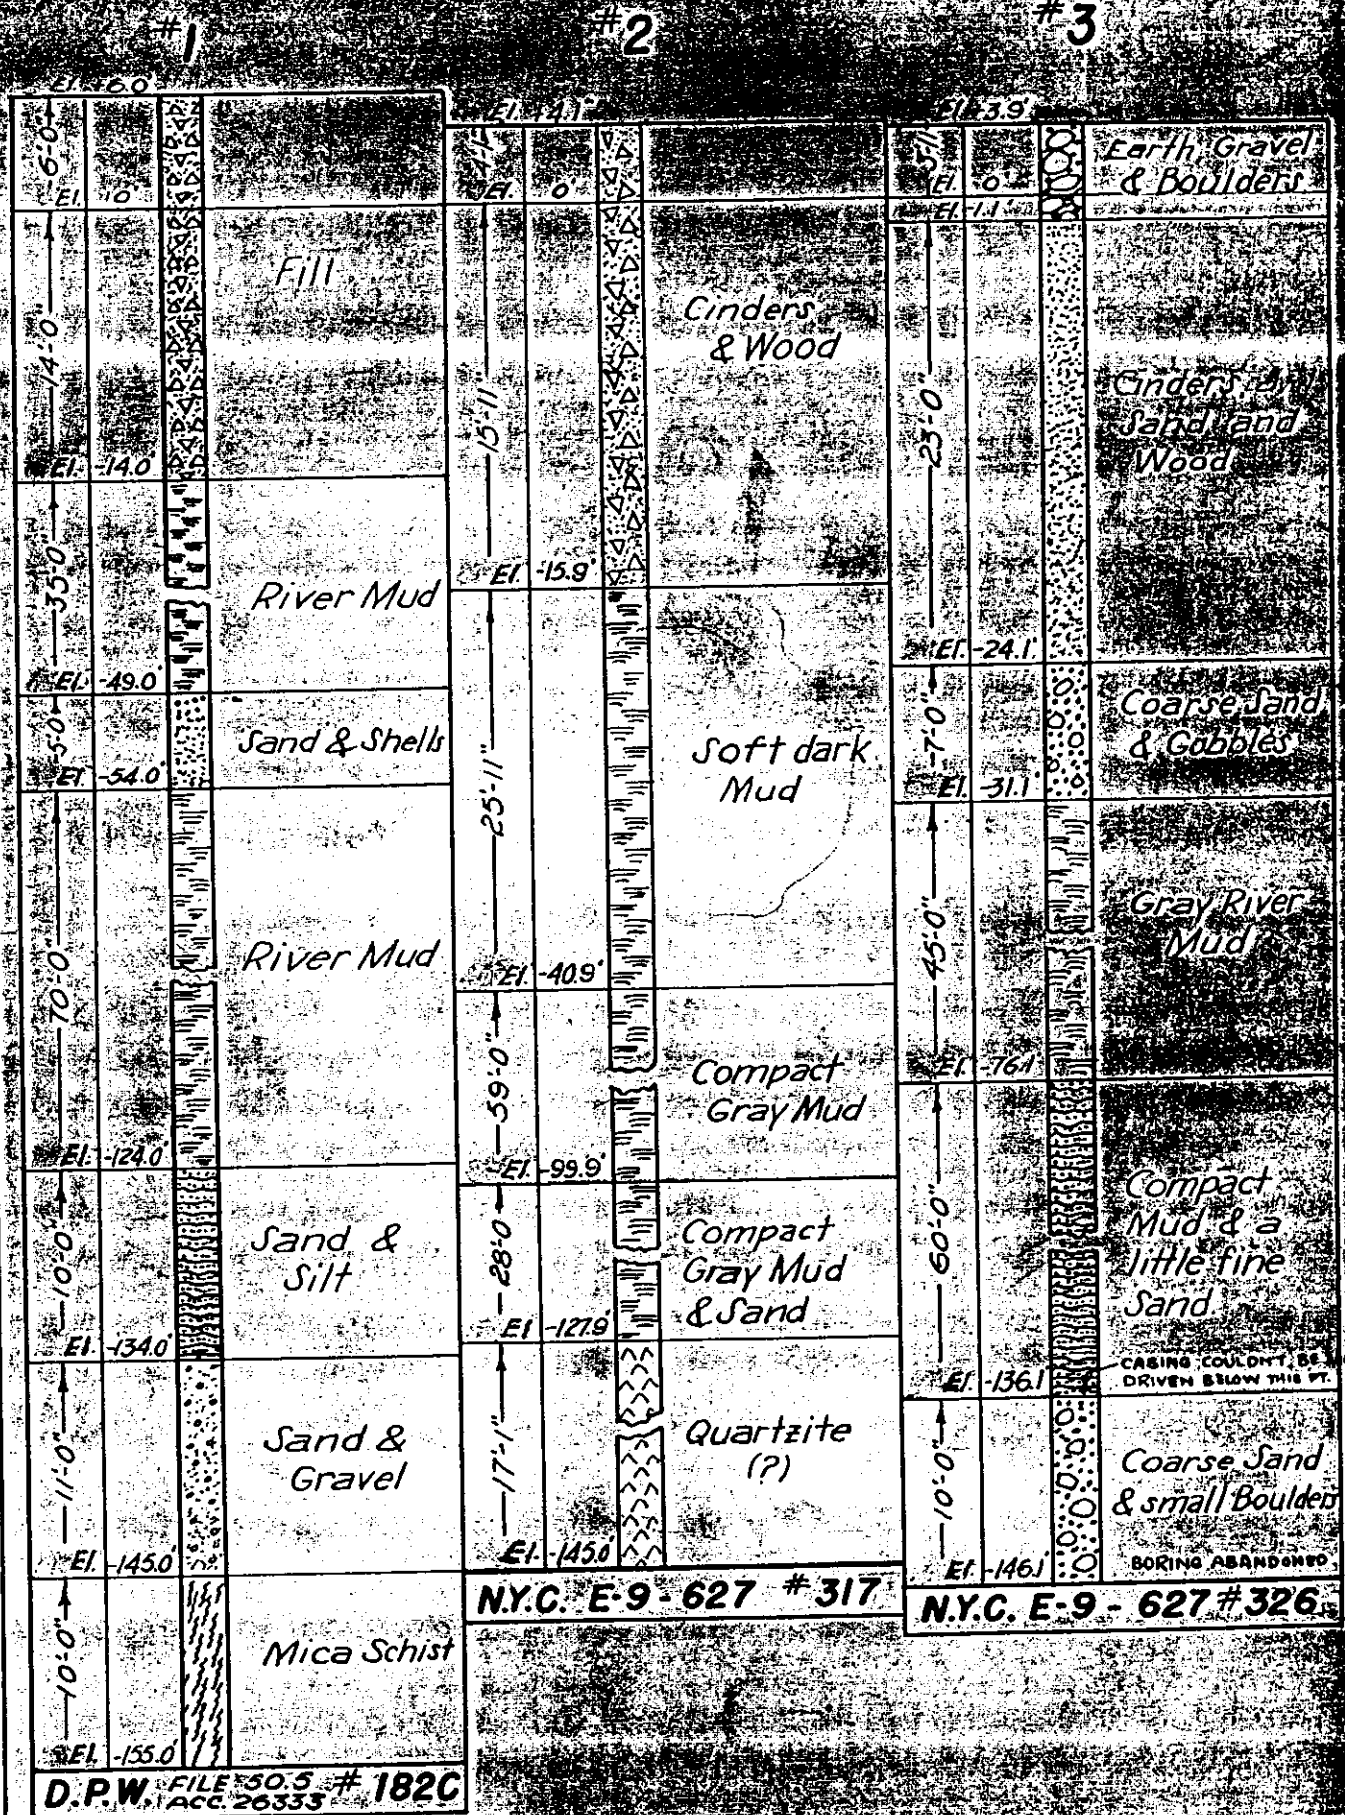 #1
El. +6.0'
6'-0"
El. 0'
Fill
14'-0"
El. -14.0'
35'-0"
River Mud
El. -49.0'
5'-0"
Sand & Shells
El. -54.0'
70'-0"
River Mud
El. -124.0'
10'-0"
Sand &
Silt
El. -134.0'
11'-0"
Sand &
Gravel
El. -145.0'
10'-0"
Mica Schist
El. -155.0'
D.P.W. FILE 50.5 # 182C
ACC. 26333
#2
El. +4.1'
El. 0'
Cinders
& Wood
15'-11"
El. -15.9'
25'-11"
Soft dark
Mud
El. -40.9'
59'-0"
Compact
Gray Mud
El. -99.9'
28'-0
Compact
Gray Mud
& Sand
El -127.9'
17'-1"
Quartzite
(?)
El. -145.0'
N.Y.C. E-9 - 627 #317
#3
El. +3.9'
Earth, Gravel
& Boulders
El. 0'
El. -1.1'
23'-0"
Cinders,
Sand and
Wood
El. -24.1'
7'-0"
Coarse Sand
& Cobbles
El. -31.1'
45'-0"
Gray River
Mud
El. -76.1'
60'-0"
Compact
Mud & a
little fine
Sand
CASING COULDN'T BE
DRIVEN BELOW THIS PT.
El. -136.1
10'-0"
Coarse Sand
& small Boulders
El. -146.1'
BORING ABANDONED.
N.Y.C. E-9 - 627 #326